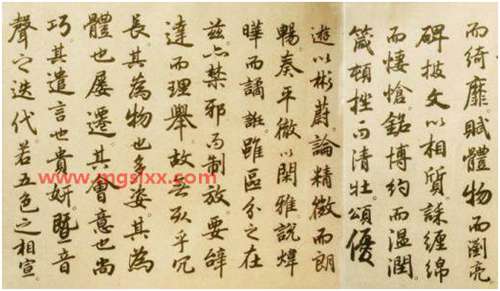 而綺靡賦體物而瀏亮
碑披文以相質誄纏綿
而悽愴銘博約而溫潤
箴頓挫而清壯頌優
遊以彬蔚論精微而朗
暢奏平徹以閑雅說煒
曄而譎誑雖區分之在
茲亦禁邪而制放要辭
達而理舉故無取乎冗
長其為物也多姿其為
體也屢遷其會意也尚
巧其遣言也貴妍暨音
聲之迭代若五色之相宣
www.mgslxx.com